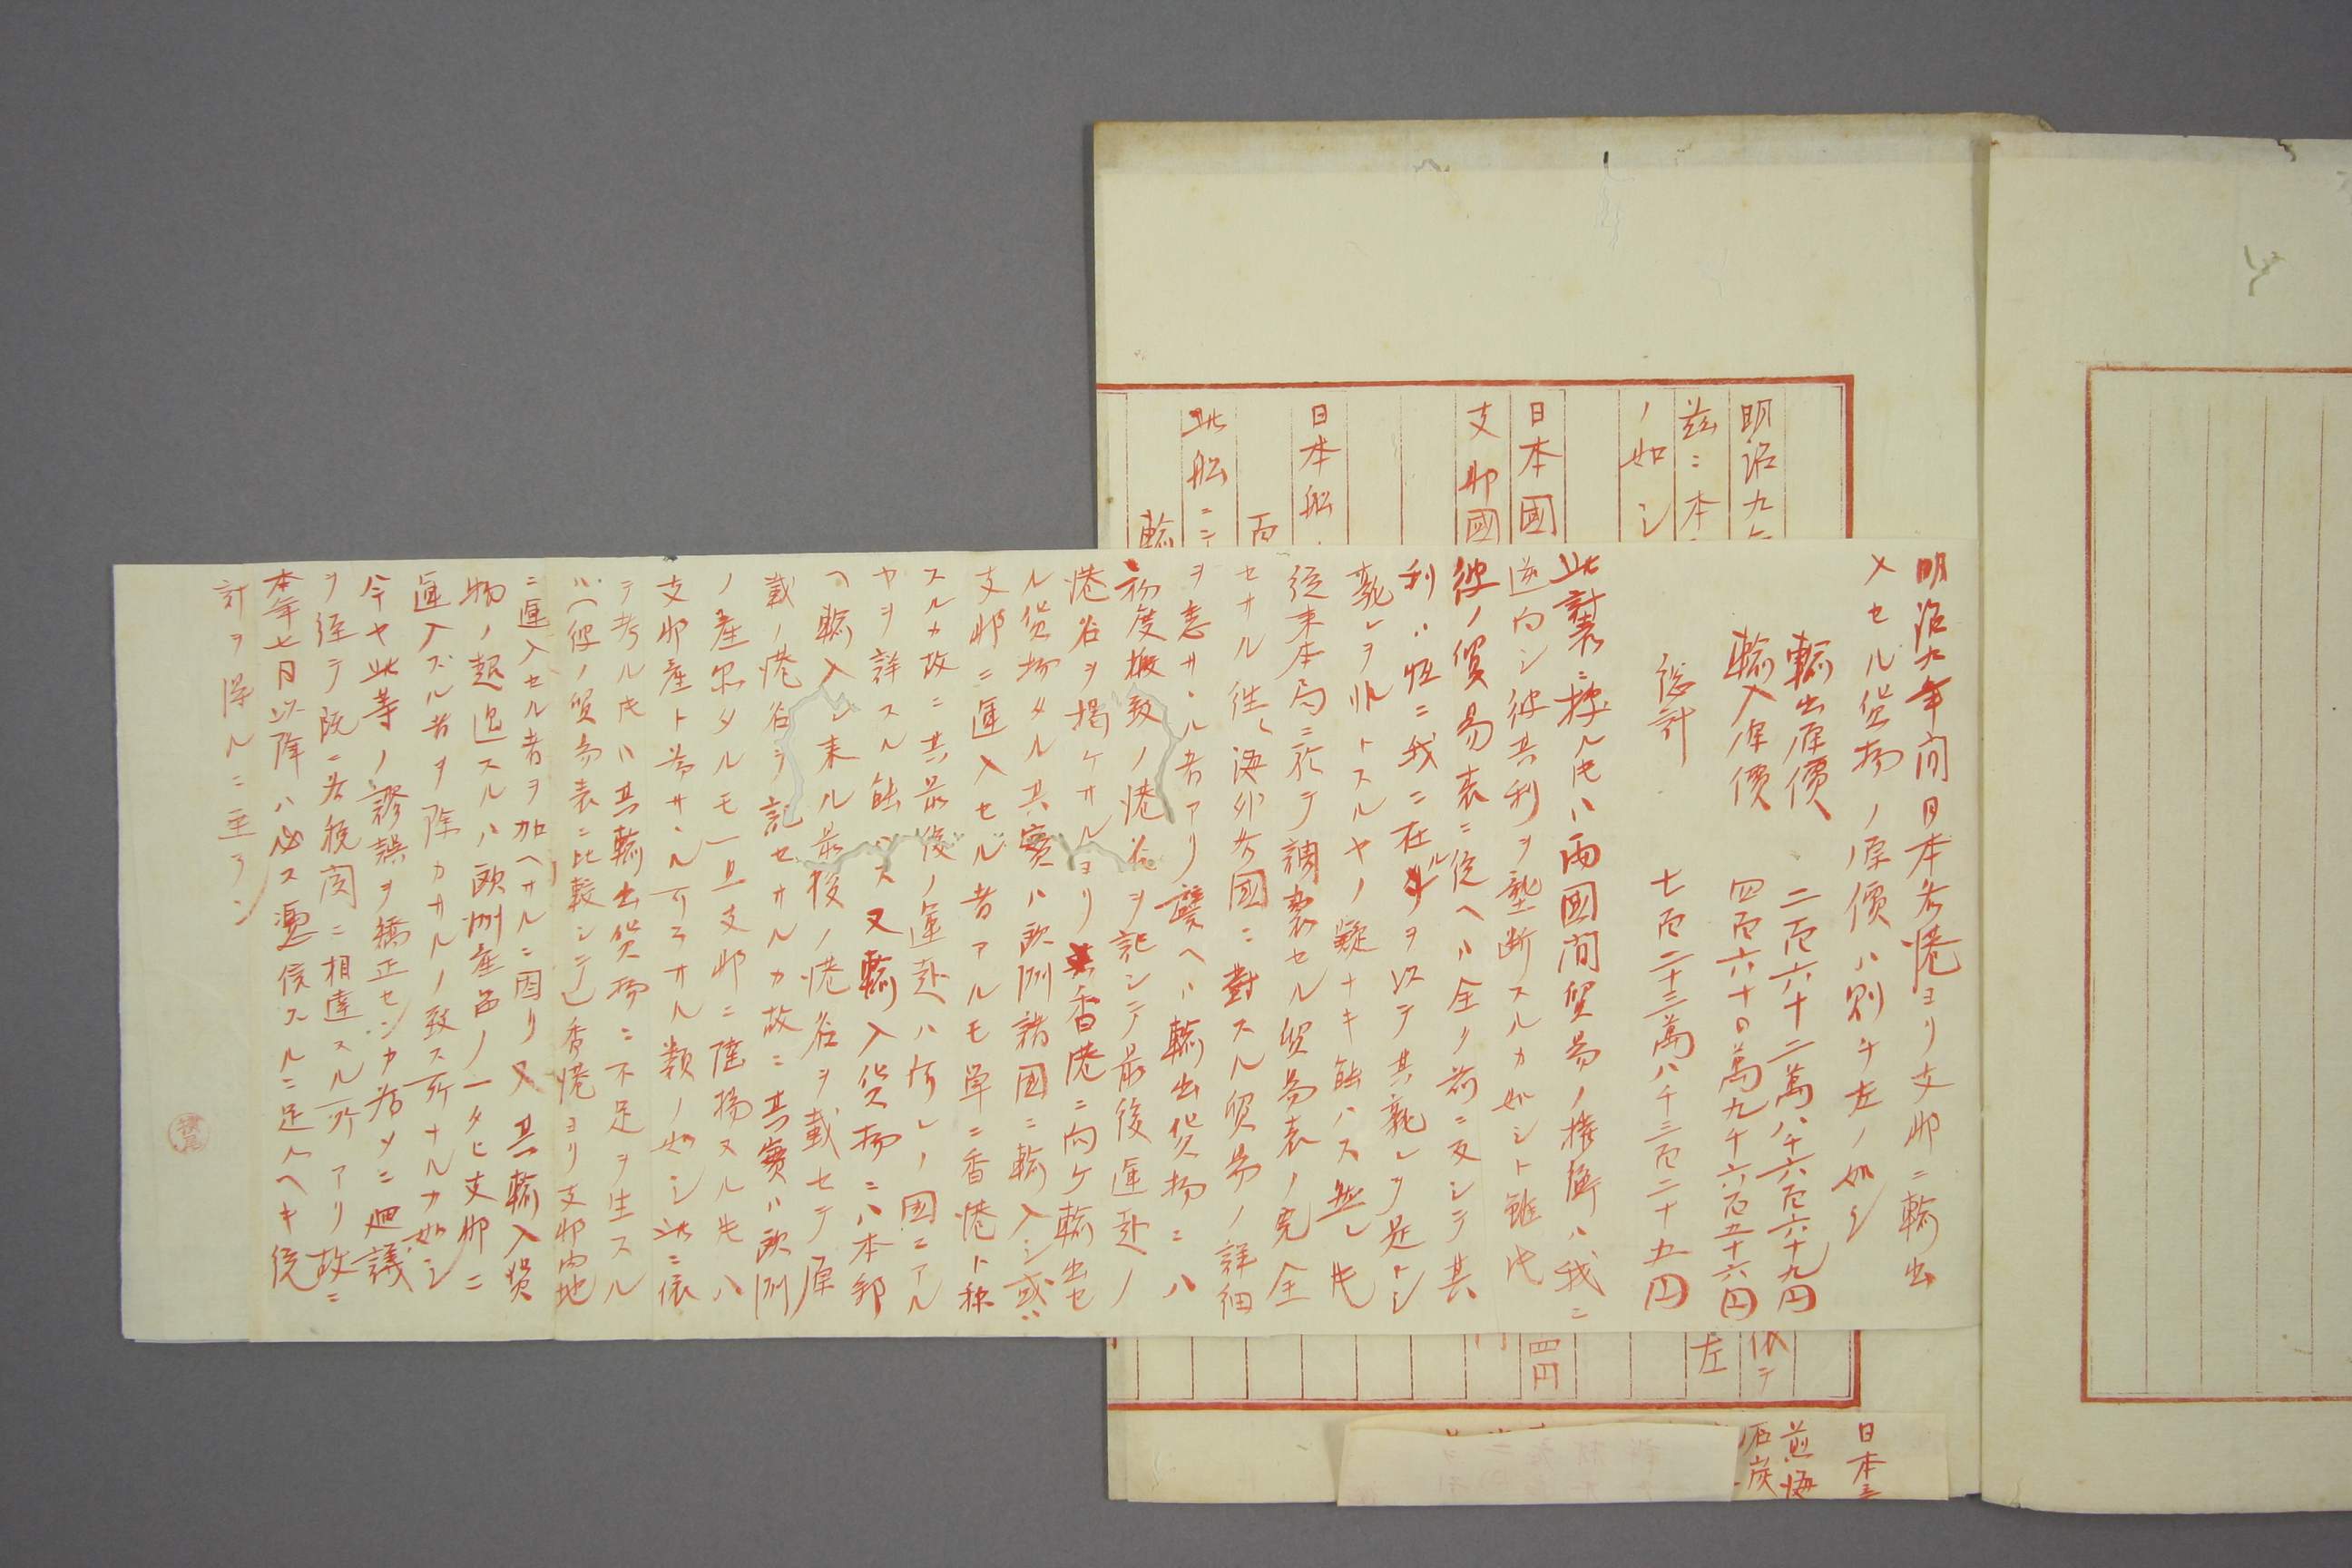 明治九年間日本各港ヨリ支那ニ輸出
入セル貨物ノ原價ハ則チ左ノ如シ
輸出原價 二百六十二萬八千六百六十九円
輸入原價 四百六十萬九千六百五十六円
總計 七百二十三萬八千三百二十五円
此計表ニ據ルトキハ兩國間貿易ノ權衡ハ我ニ
逆向シ彼其利ヲ壟断スルカ如シト雖トモ
彼ノ貿易表ニ従ヘハ全ク前ニ反シテ其
利ハ恒ニ我ニ在ルヲ以テ其孰レヲ是トシ
孰レヲ非トスルヤノ疑ナキ能ハス然レトモ
従来本局ニ於テ調製セル貿易表ノ完全
セサル往々海外各國ニ對スル貿易ノ詳細
ヲ悉サヽル者アリ譬ヘハ輸出貨物ニハ
初度搬致ノ港名ヲ記シテ最後運赴ノ
港名ヲ掲ケサルヨリ香港ニ向ケ輸出セ
ル貨物タル其實ハ欧洲諸國ニ輸入シ或ハ
支那ニ運入セル者アルモ単ニ香港ト称
スルカ故ニ其最後ノ運赴ハ何レノ国ニアル
ヤヲ詳スル能ハス又輸入貨物ニハ本邦
ヘ輸入シ来ル最後ノ港名ヲ載セテ原
載ノ港名ヲ記セサルカ故ニ其實ハ欧洲
ノ産品タルモ一旦支那ニ陸揚スルトキハ
支那産ト為サヽル可ラサル類ノ如シ此ニ依
テ考ルトキハ其輸出貨物ニ不足ヲ生スル
ハ(彼ノ貿易表ニ比較シテ)香港ヨリ支那内地
ニ運入セル者ヲ加ヘサルニ因リ又其輸入貨
物ノ超過スルハ欧洲産品ノ一タヒ支那ニ
運入スル者ヲ除カサルノ致ス所ナルカ如シ
今ヤ此等ノ謬誤ヲ矯正センカ為メニ廻議
ヲ経テ既ニ各税関ニ相達スル所アリ故ニ
本年七月以降ハ必ス憑信スルニ足ルヘキ統
計ヲ得ルニ至ラン
明治九年
依テ
茲ニ本
左
ノ如シ
日本國
四円
支那國
日本船
此船ニテ
輸
日本
煎海
石炭